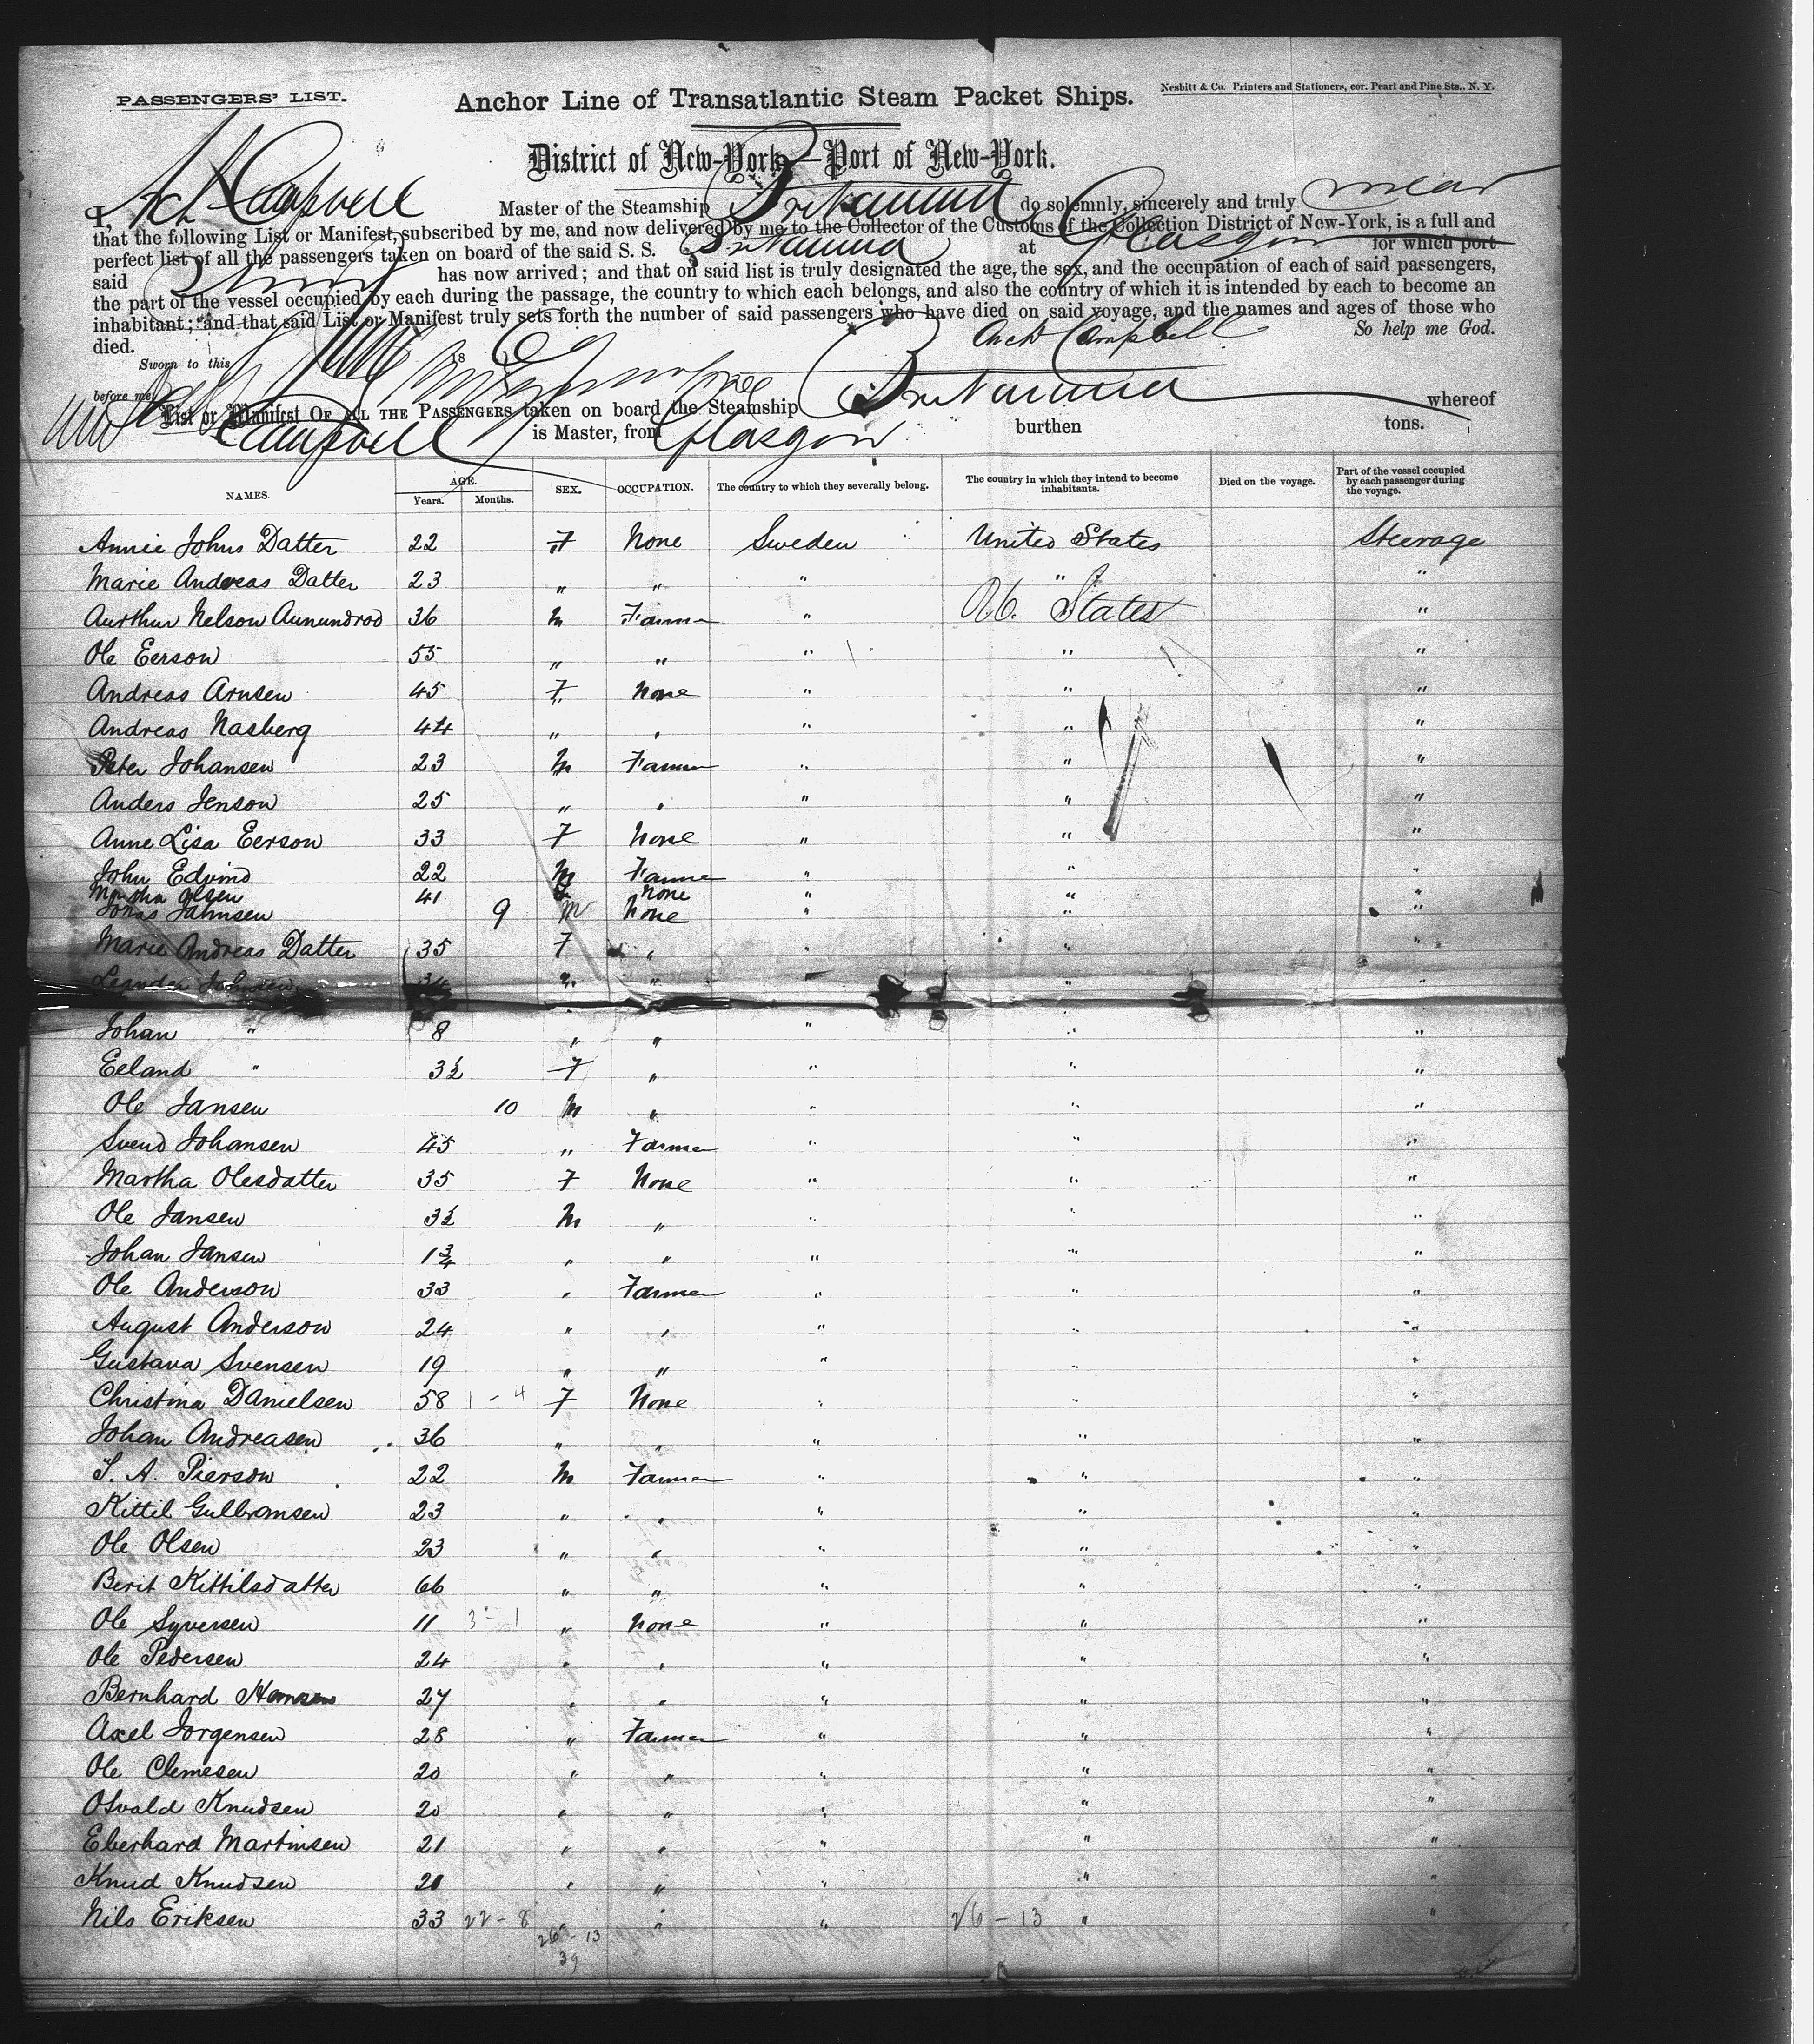 PASSENGERS' LIST.
Anchor Line of Transatlantic Steam Packet Ships.
Nesbitt & Co. Printers and Stationers, cor. Pearl and Pine Sts., N. Y.
District of New-York—Port of New-York.
I, Campbell Master of the Steamship Britannia do solemnly, sincerely and truly swear
that the following List or Manifest, subscribed by me, and now delivered by me to the Collector of the Customs of the Collection District of New-York, is a full and
perfect list of all the passengers taken on board of the said S. S. Britannia at Glasgow for which port
said has now arrived; and that on said list is truly designated the age, the sex, and the occupation of each of said passengers,
the part of the vessel occupied by each during the passage, the country to which each belongs, and also the country of which it is intended by each to become an
inhabitant; and that said List or Manifest truly sets forth the number of said passengers who have died on said voyage, and the names and ages of those who
died. Archd Campbell So help me God.
Sworn to this 18
before me
List or Manifest OF ALL THE PASSENGERS taken on board the Steamship Britannia whereof
Campbell is Master, from Glasgow burthen tons.
NAMES. AGE. Years. Months. SEX. OCCUPATION. The country to which they severally belong. The country in which they intend to become inhabitants. Died on the voyage. Part of the vessel occupied by each passenger during the voyage.
Annie Johns Datter 22 F None Sweden United States Steerage
Marie Andreas Datter 23 " " " " "
Aurthur Nelson Aunundrod 36 M Farmer " States "
Ole Eerson 55 " " " " "
Andreas Arnsen 45 F None " " "
Andreas Nasberg 44 " " " " "
Peter Johansen 23 M Farmer " " "
Anders Jenson 25 " " " " "
Anne Lisa Eerson 33 F None " " "
John Edvind 22 M Farmer " " "
Martha Olsen 41 F None " "
Jonas Jahnsen 9 M None " " "
Marie Andreas Datter 35 F " " " "
Leander Johnsen 34 " " " " "
Johan " 8 " " " " "
Eeland " 3½ F " " " "
Ole Jansen 10 M " " " "
Svend Johansen 45 " Farmer " " "
Martha Olesdatter 35 F None " " "
Ole Jansen 3½ M " " " "
Johan Jansen 1¾ " " " " "
Ole Anderson 33 " Farmer " " "
August Anderson 24 " " " " "
Gustava Svensen 19 " " " " "
Christina Danielsen 58 1 - 4 F None " " "
Johan Andreasen 36 " " " " "
S. A. Pierson 22 M Farmer " " "
Kittil Gulbransen 23 " " " " "
Ole Olsen 23 " " " " "
Berit Kittilsdatter 66 " " " " "
Ole Syversen 11 3 - 1 " None " " "
Ole Pedersen 24 " " " " "
Bernhard Hansen 27 " " " " "
Axel Jorgensen 28 " Farmer " " "
Ole Clemesen 20 " " " " "
Osvald Knudsen 20 " " " " "
Eberhard Martinsen 21 " " " " "
Knud Knudsen 20 " " " " "
Nils Eriksen 33 22 - 8 " " " 26 - 13 " "
26 - 13
39